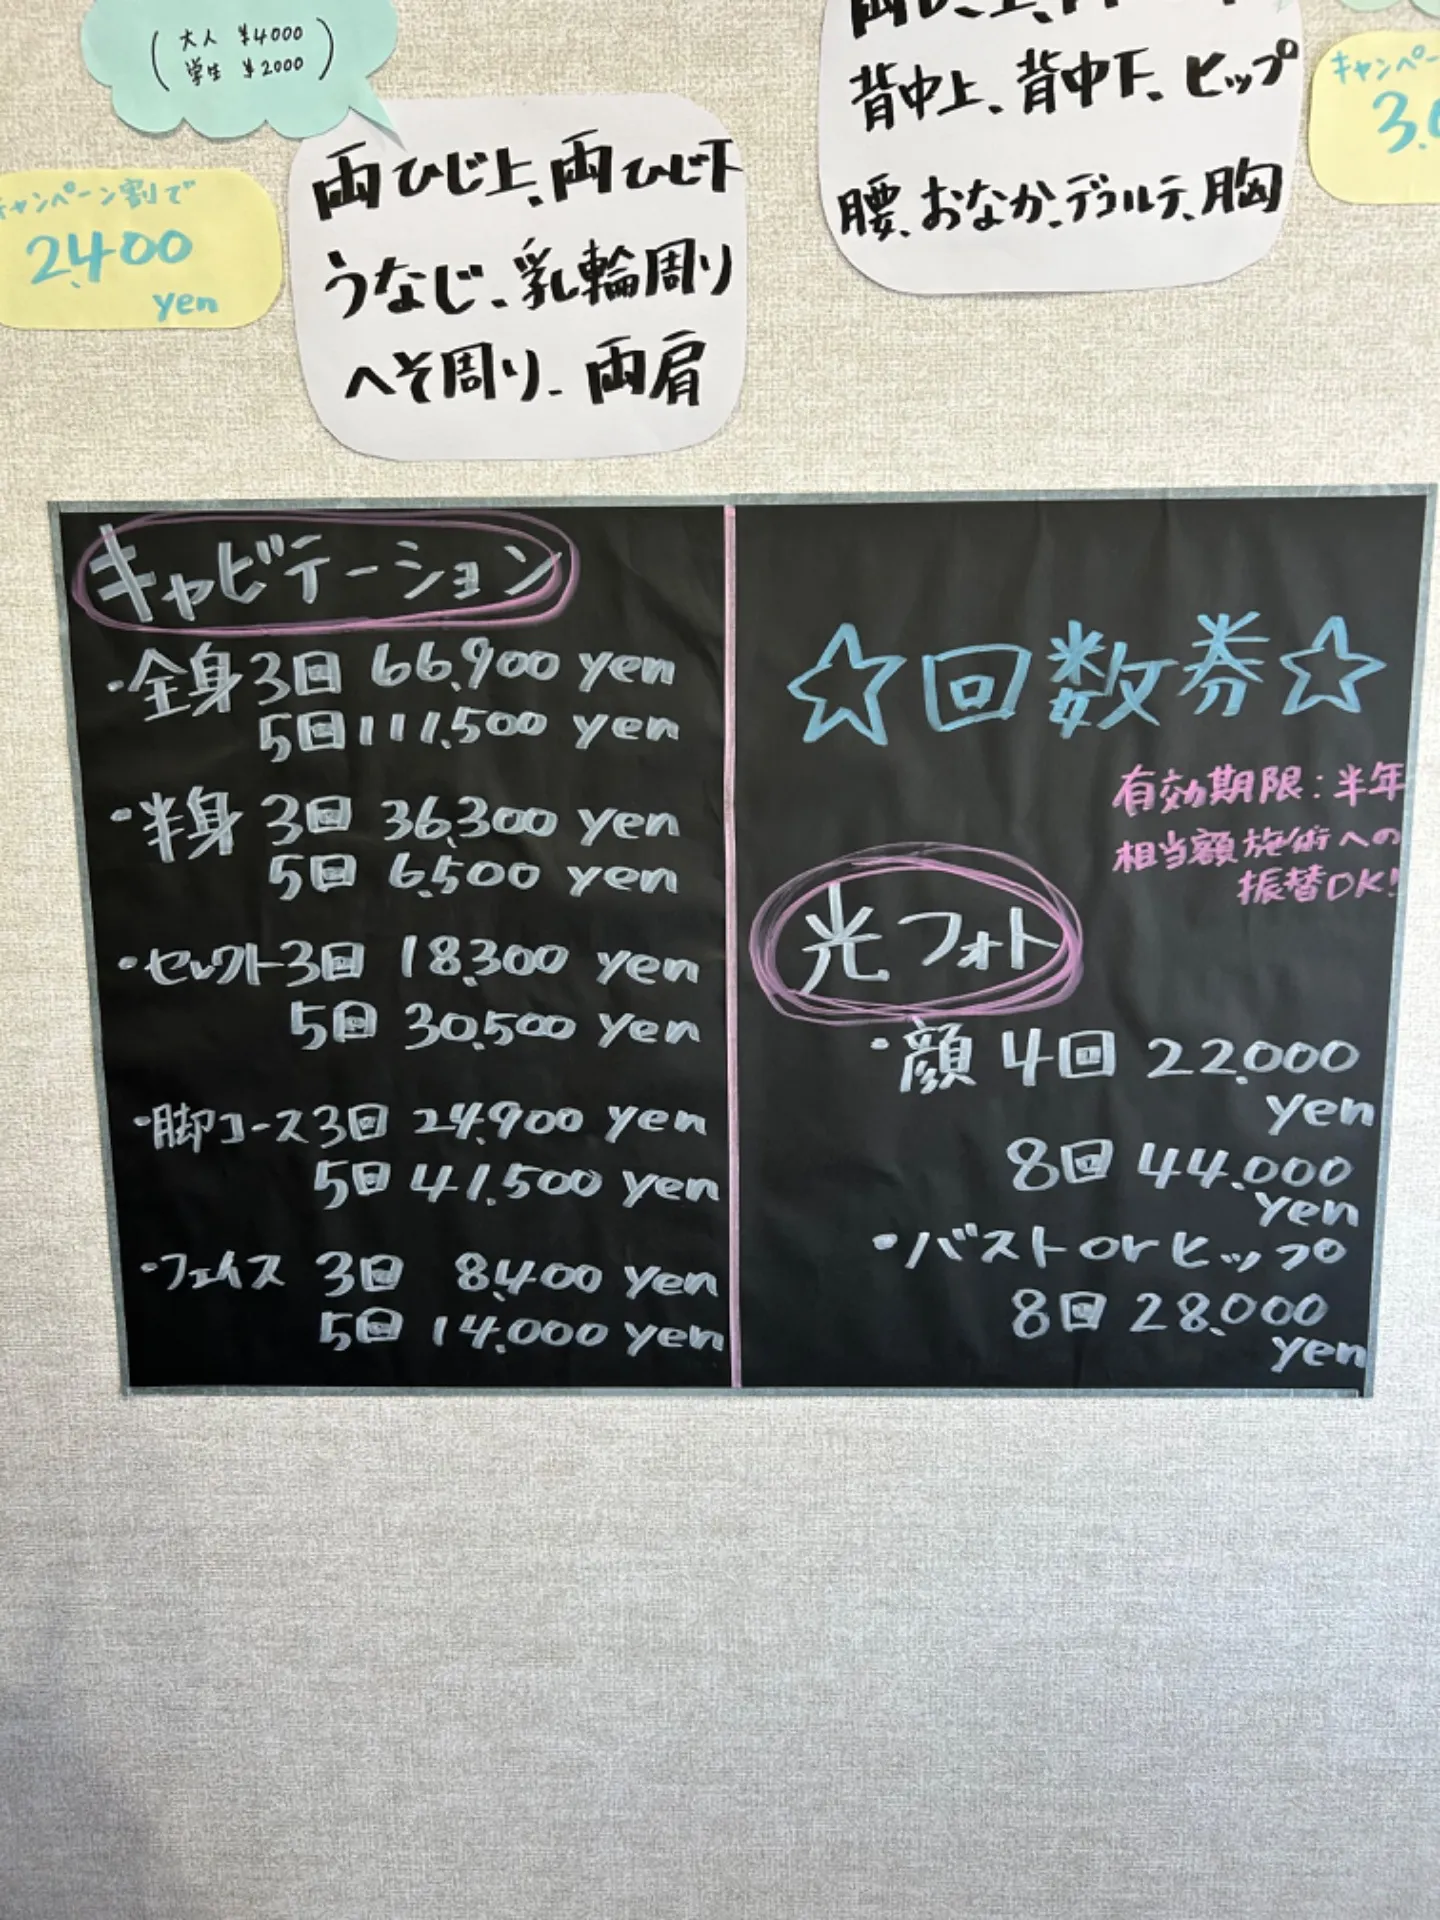 (大人 ¥4000
学生 ¥2000)
キャンペーン割で
2,400
yen
両ひじ上、両ひじ下
うなじ、乳輪周り
へそ周り、両肩
背中上、背中下、ヒップ
腰、おなか、デコルテ、胸
キャンペー
3,0
キャビテーション
・全身 3回 66,900 yen
5回 111,500 yen
・半身 3回 36,300 yen
5回 6,500 yen
・セレクト 3回 18,300 yen
5回 30,500 yen
・脚コース 3回 24,900 yen
5回 41,500 yen
・フェイス 3回 8,400 yen
5回 14,000 yen
☆回数券☆
有効期限:半年
相当額施術への
振替OK!
光フォト
・顔 4回 22,000
yen
8回 44,000
yen
・バスト or ヒップ
8回 28,000
yen